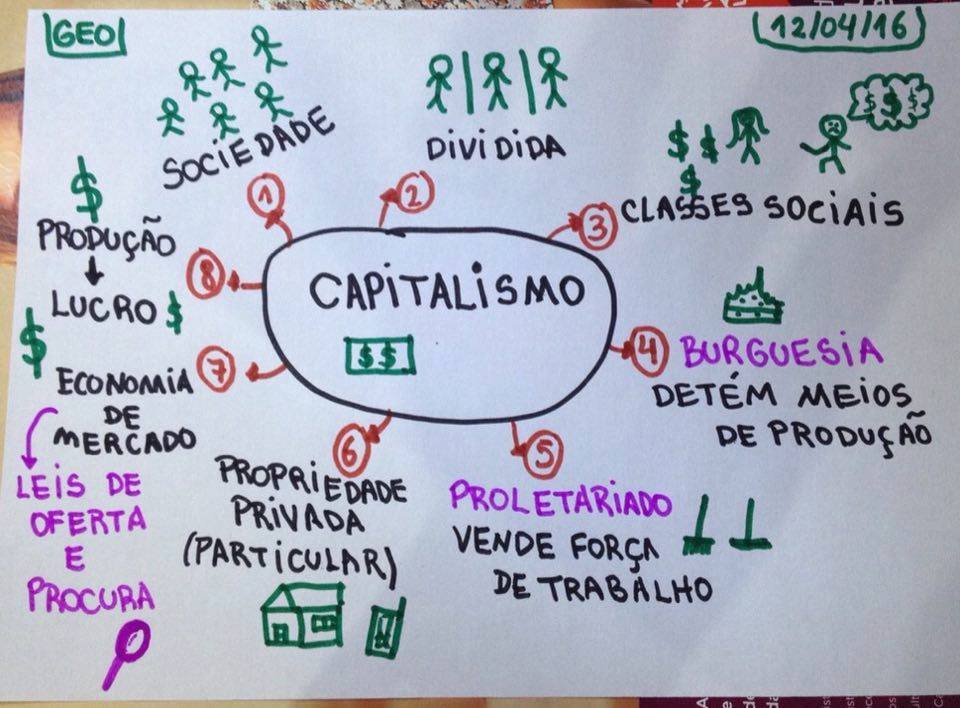 GEO
12/04/16
1
SOCIEDADE
2
DIVIDIDA
$ $ $
$ $
$
3
CLASSES SOCIAIS
CAPITALISMO
$ $
4
BURGUESIA
DETÉM MEIOS
DE PRODUÇÃO
5
PROLETARIADO
VENDE FORÇA
DE TRABALHO
6
PROPRIEDADE
PRIVADA
(PARTICULAR)
7
$
ECONOMIA
DE
MERCADO
LEIS DE
OFERTA
E
PROCURA
8
$
PRODUÇÃO
LUCRO $